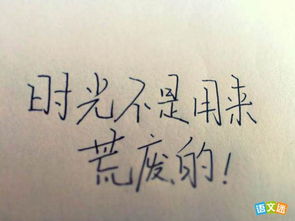 时光不是用来
荒废的!
语文迷